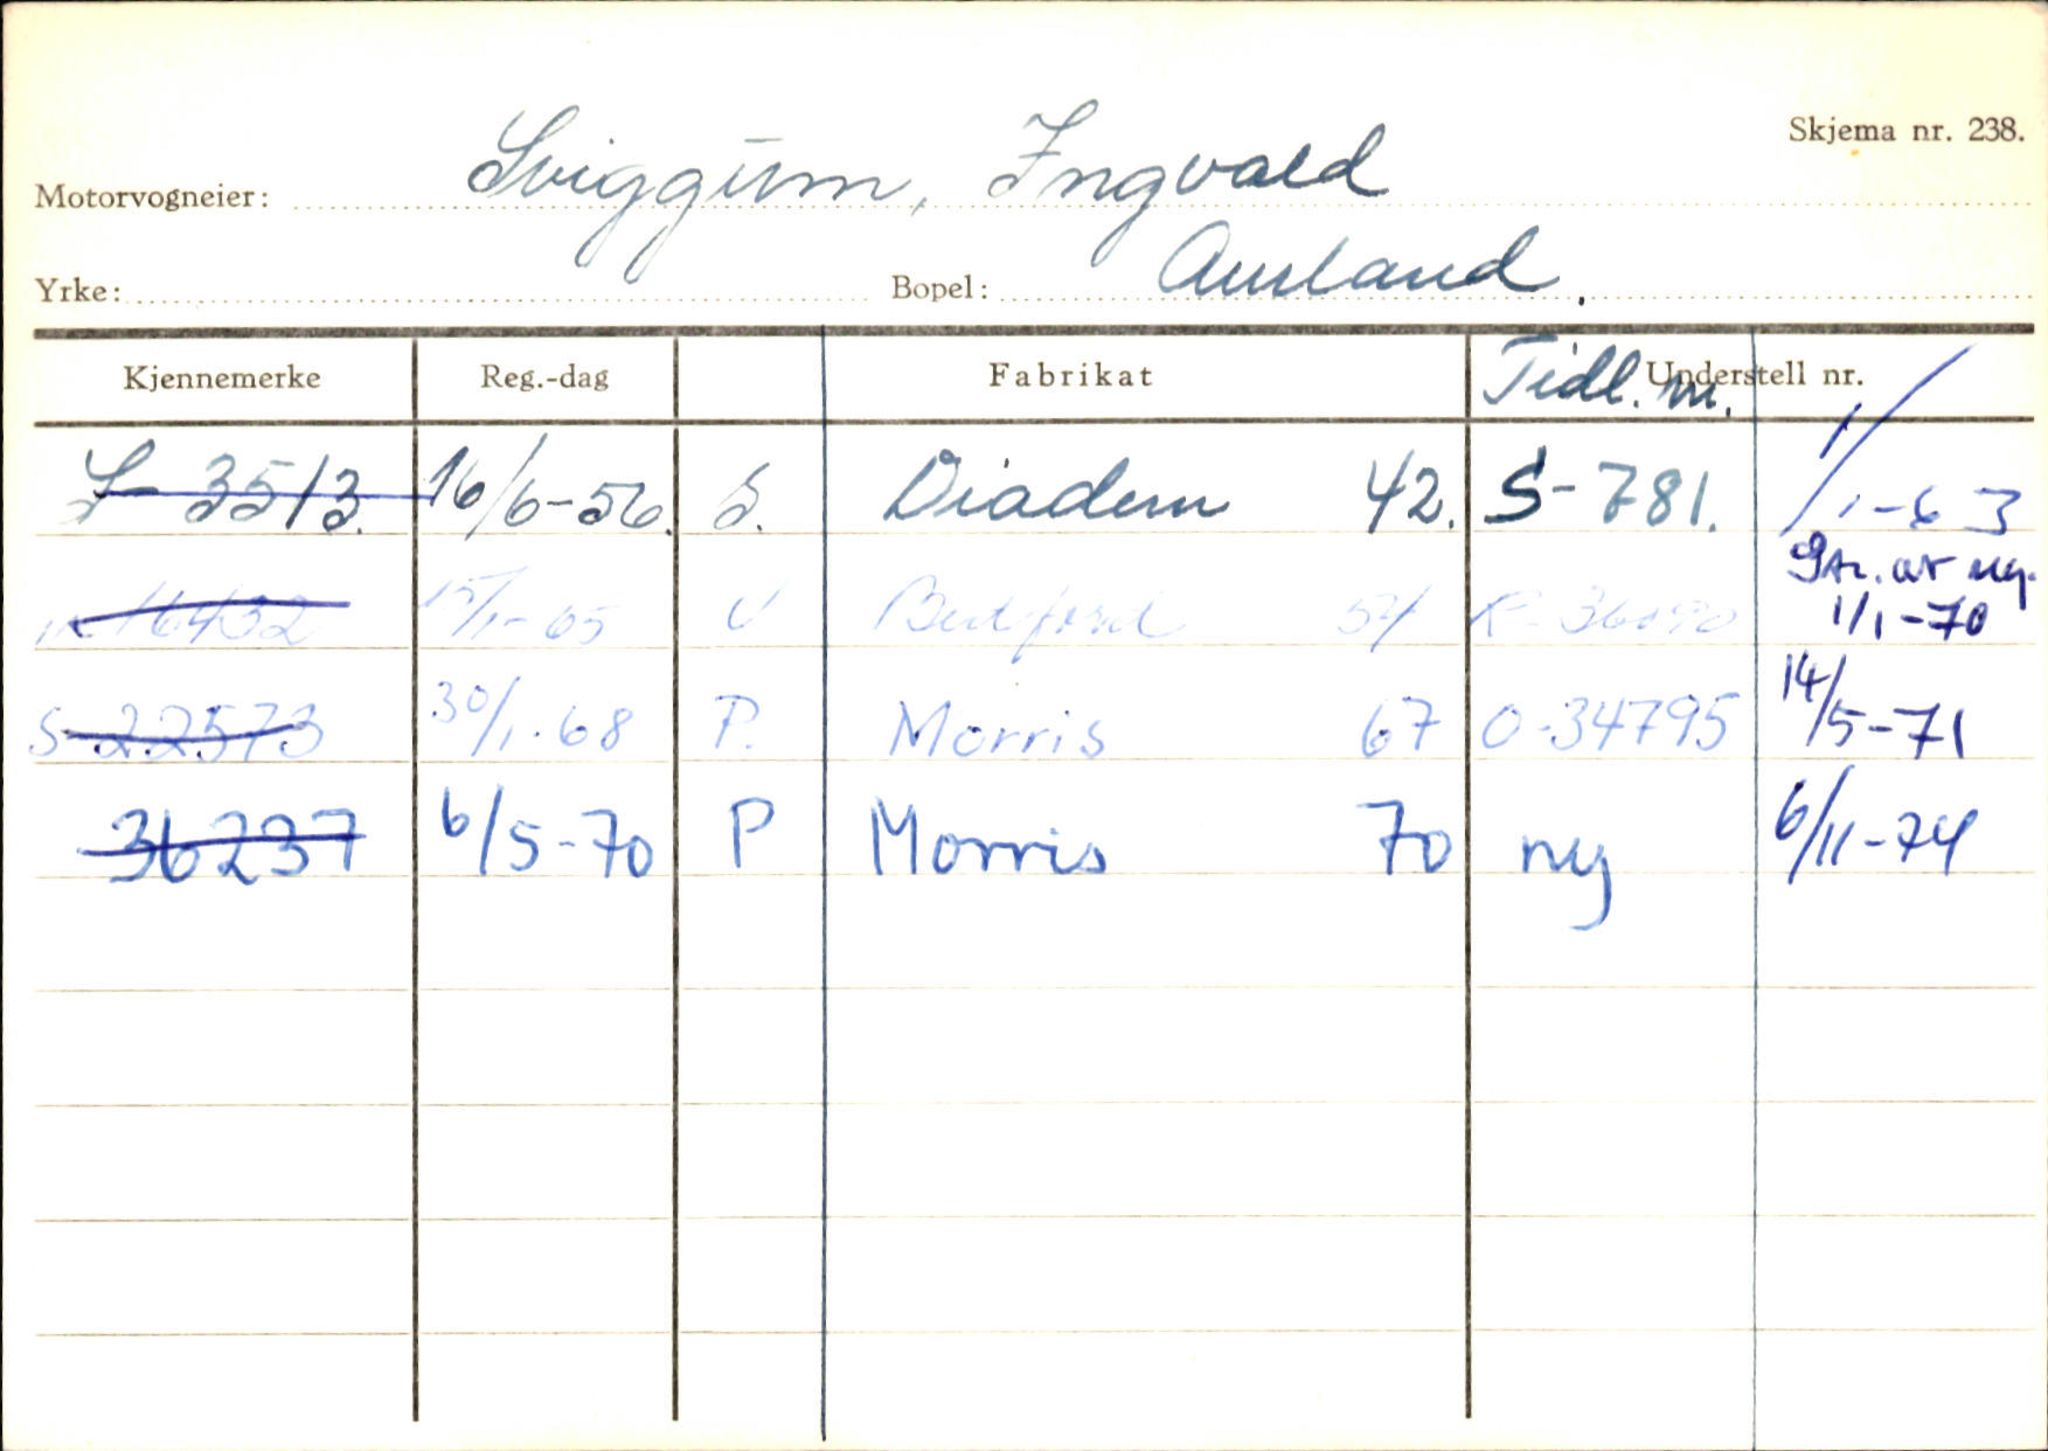 Skjema nr. 238.
Motorvogneier: Sviggum, Ingvald
Yrke: Bopel: Aurland.
Kjennemerke Reg.-dag Fabrikat Tidl. nr. Understell nr.
S-3513. 16/6-56. S. Diadem 42. S-781. 1/1-63
16432 15/1-65 V Bedford 54 Str. av reg. 1/1-70
S-22573 30/1-68 P. Morris 67 O-34795 14/5-71
36237 6/5-70 P Morris 70 ny 6/11-74